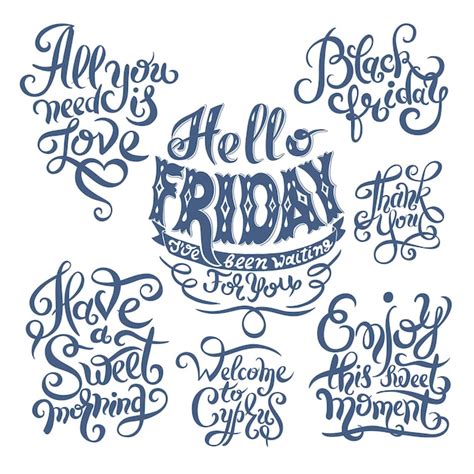 All you
need is
Love
Black
friday
Hello
FRIDAY
I've been waiting
For You
Thank
You
Have
a
Sweet
morning
Welcome
to
Cyprus
Enjoy
this sweet
moment